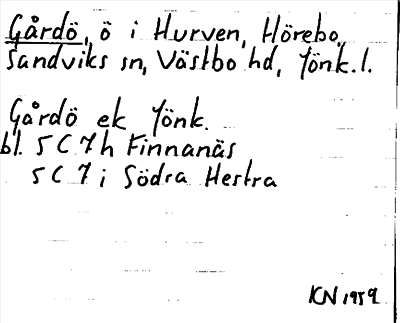 Gårdö, ö i Hurven, Hörebo,
Sandviks sn, Västbo hd, Jönk. l.
Gårdö ek Jönk.
bl. 5 C 7 h Finnanäs
5 C 7 i Södra Hestra
KN 1959